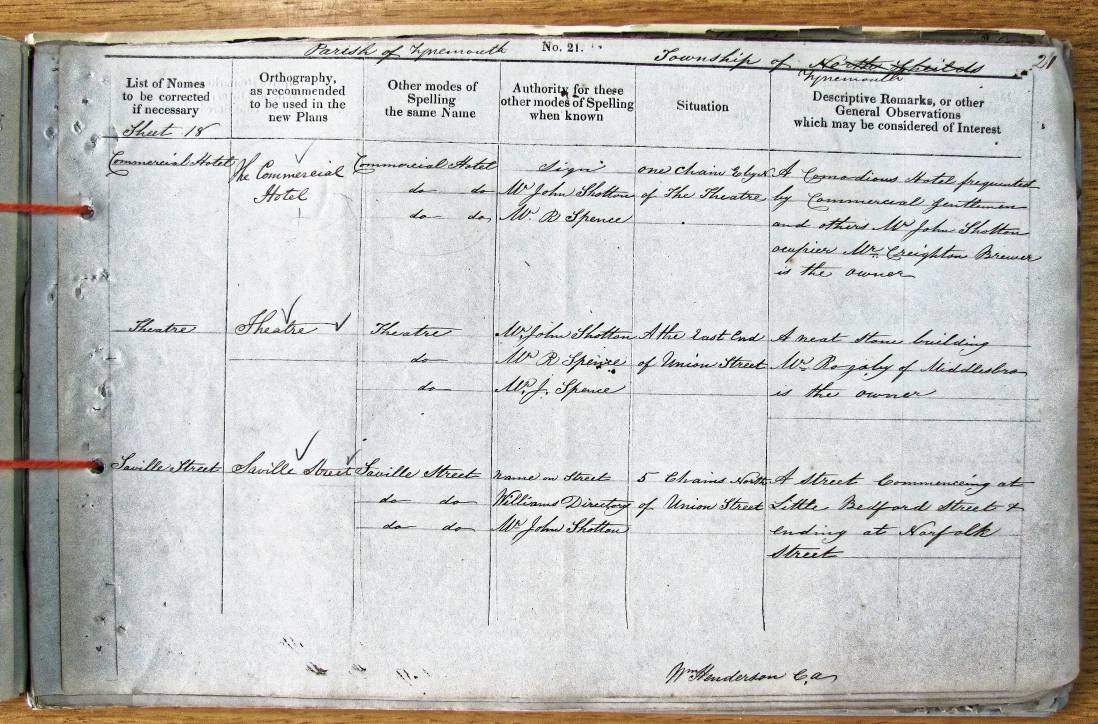 Parish of Tynemouth No. 21. Township of North Shields 21
Tynemouth
List of Names
to be corrected
if necessary
Orthography,
as recommended
to be used in the
new Plans
Other modes of
Spelling
the same Name
Authority for these
other modes of Spelling
when known
Situation
Descriptive Remarks, or other
General Observations
which may be considered of Interest
Sheet 18
Commercial Hotel
The Commercial
Hotel
Commercial Hotel
do do
do do
Sign
Mr John Shotton
Mr R Spence
one chain
of The Theatre
A Comodious Hotel frequented
by Commercial gentlemen
and others Mr John Shotton
ocupier Mr Creighton Brewer
is the owner
Theatre
Theatre
Theatre
do
do
Mr John Shotton
Mr R Spence
Mr J. Spence
At the East End
of Union Street
A neat stone building
Mr of Middlesbro
is the owner
Saville Street
Saville Street
Saville Street
do do
do do
Name on Street
Williams Directory
Mr John Shotton
5 Chains North
of Union Street
A Street Commencing at
Little Bedford Street &
ending at Norfolk
Street
Wm Henderson C.a